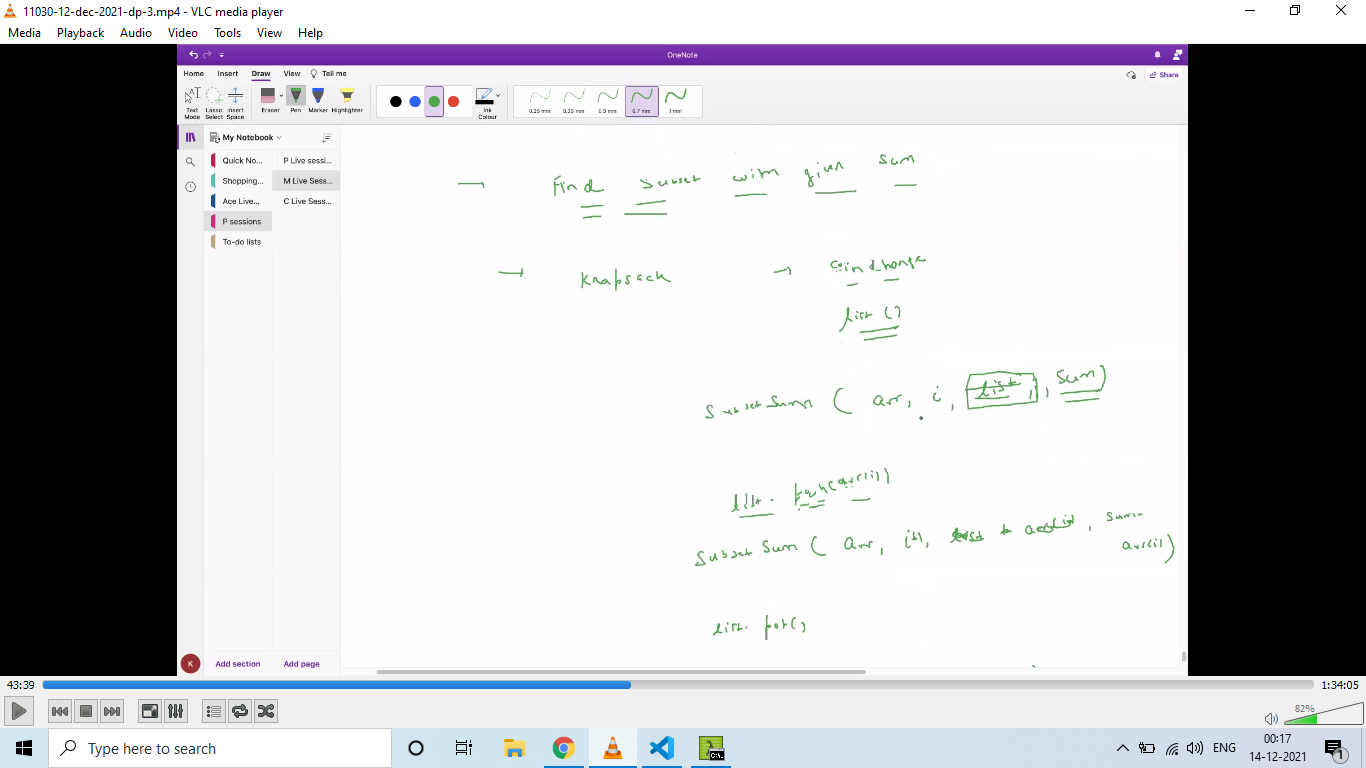 11030-12-dec-2021-dp-3.mp4 - VLC media player
Media Playback Audio Video Tools View Help
OneNote
Home Insert Draw View Tell me
Share
Text Mode
Lasso Select
Insert Space
Eraser
Pen
Marker
Highlighter
Ink Colour
0.25 mm
0.35 mm
0.5 mm
0.7 mm
1 mm
My Notebook
Quick No...
Shopping...
Ace Live...
P sessions
To-do lists
P Live sessi...
M Live Sess...
C Live Sess...
Find subset with given sum
Knapsack
coin change
list ()
SubsetSum ( arr, i, list, sum)
list. push(arr[i])
SubsetSum ( arr, i+1, list + arr[i], sum-
arr[i])
list. pop()
K
Add section
Add page
43:39
1:34:05
82%
Type here to search
ENG
00:17
14-12-2021
1